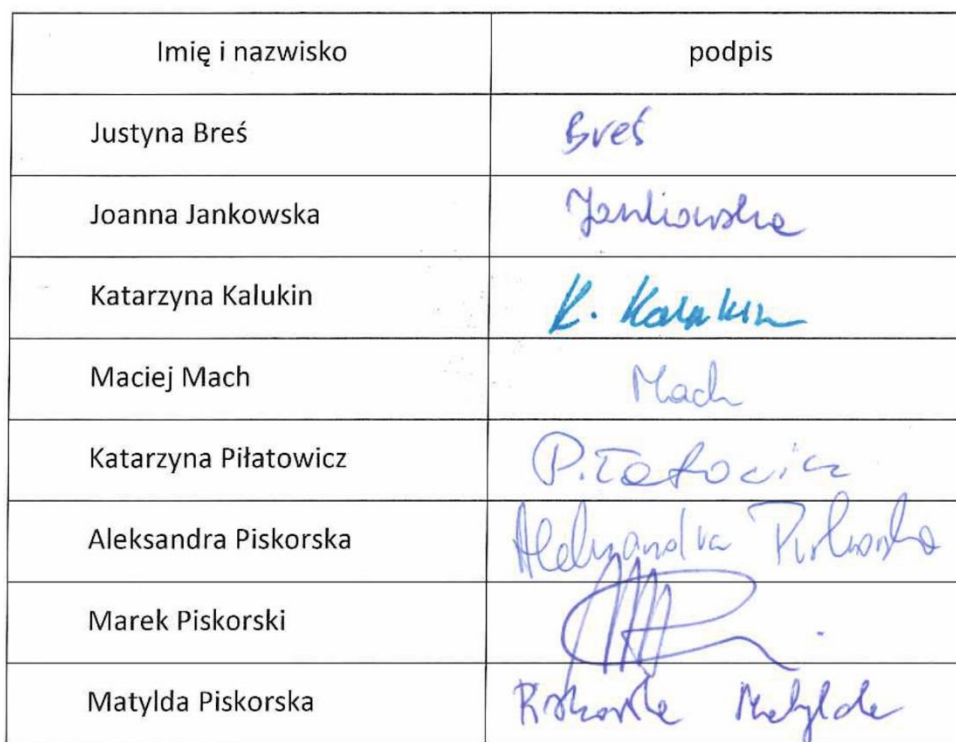 Imię i nazwisko podpis
Justyna Breś Breś
Joanna Jankowska Jankowska
Katarzyna Kalukin K. Kalukin
Maciej Mach Mach
Katarzyna Piłatowicz Piłatowicz
Aleksandra Piskorska Aleksandra Piskorska
Marek Piskorski
Matylda Piskorska Piskorska Matylda